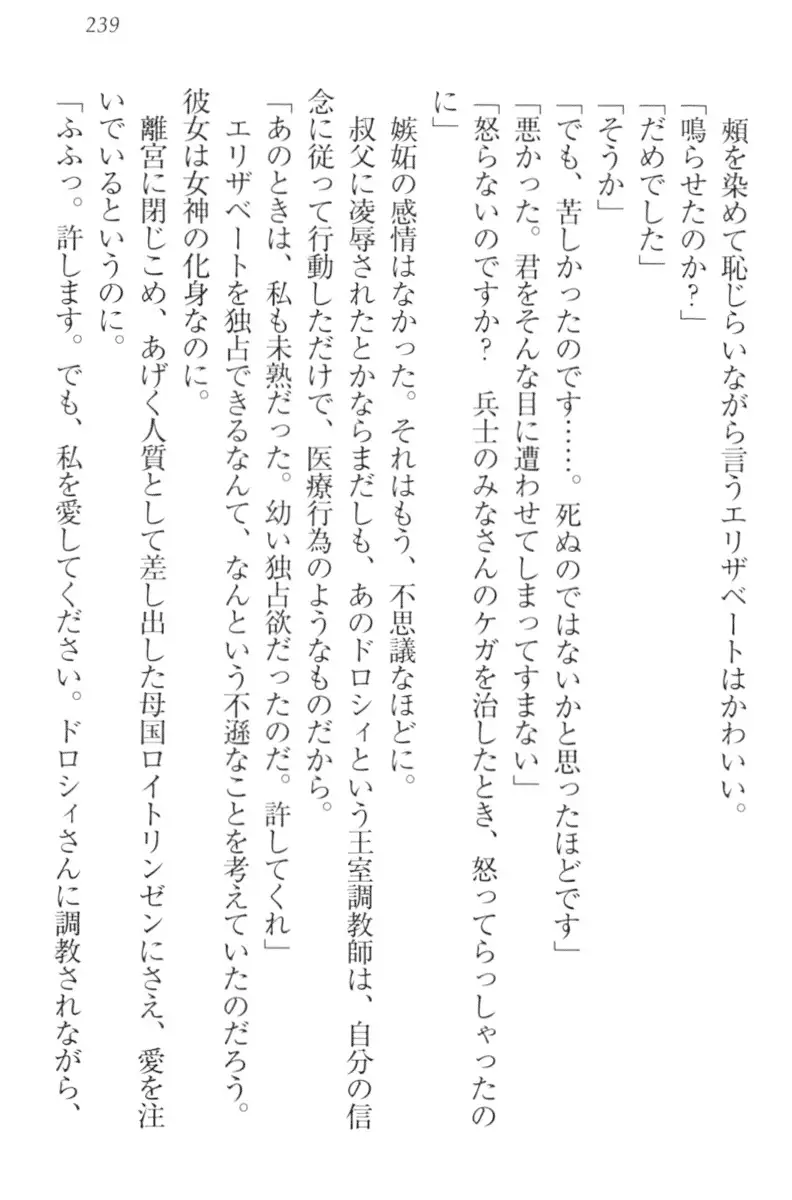 239
頰を染めて恥じらいながら言うエリザベートはかわいい。
「鳴らせたのか?」
「だめでした」
「そうか」
「でも、苦しかったのです……。死ぬのではないかと思ったほどです」
「悪かった。君をそんな目に遭わせてしまってすまない」
「怒らないのですか? 兵士のみなさんのケガを治したとき、怒ってらっしゃったの
に」
嫉妬の感情はなかった。それはもう、不思議なほどに。
叔父に凌辱されたとかならまだしも、あのドロシィという王室調教師は、自分の信
念に従って行動しただけで、医療行為のようなものだから。
「あのときは、私も未熟だった。幼い独占欲だったのだ。許してくれ」
エリザベートを独占できるなんて、なんという不遜なことを考えていたのだろう。
彼女は女神の化身なのに。
離宮に閉じこめ、あげく人質として差し出した母国ロイトリンゼンにさえ、愛を注
いでいるというのに。
「ふふっ。許します。でも、私を愛してください。ドロシィさんに調教されながら、